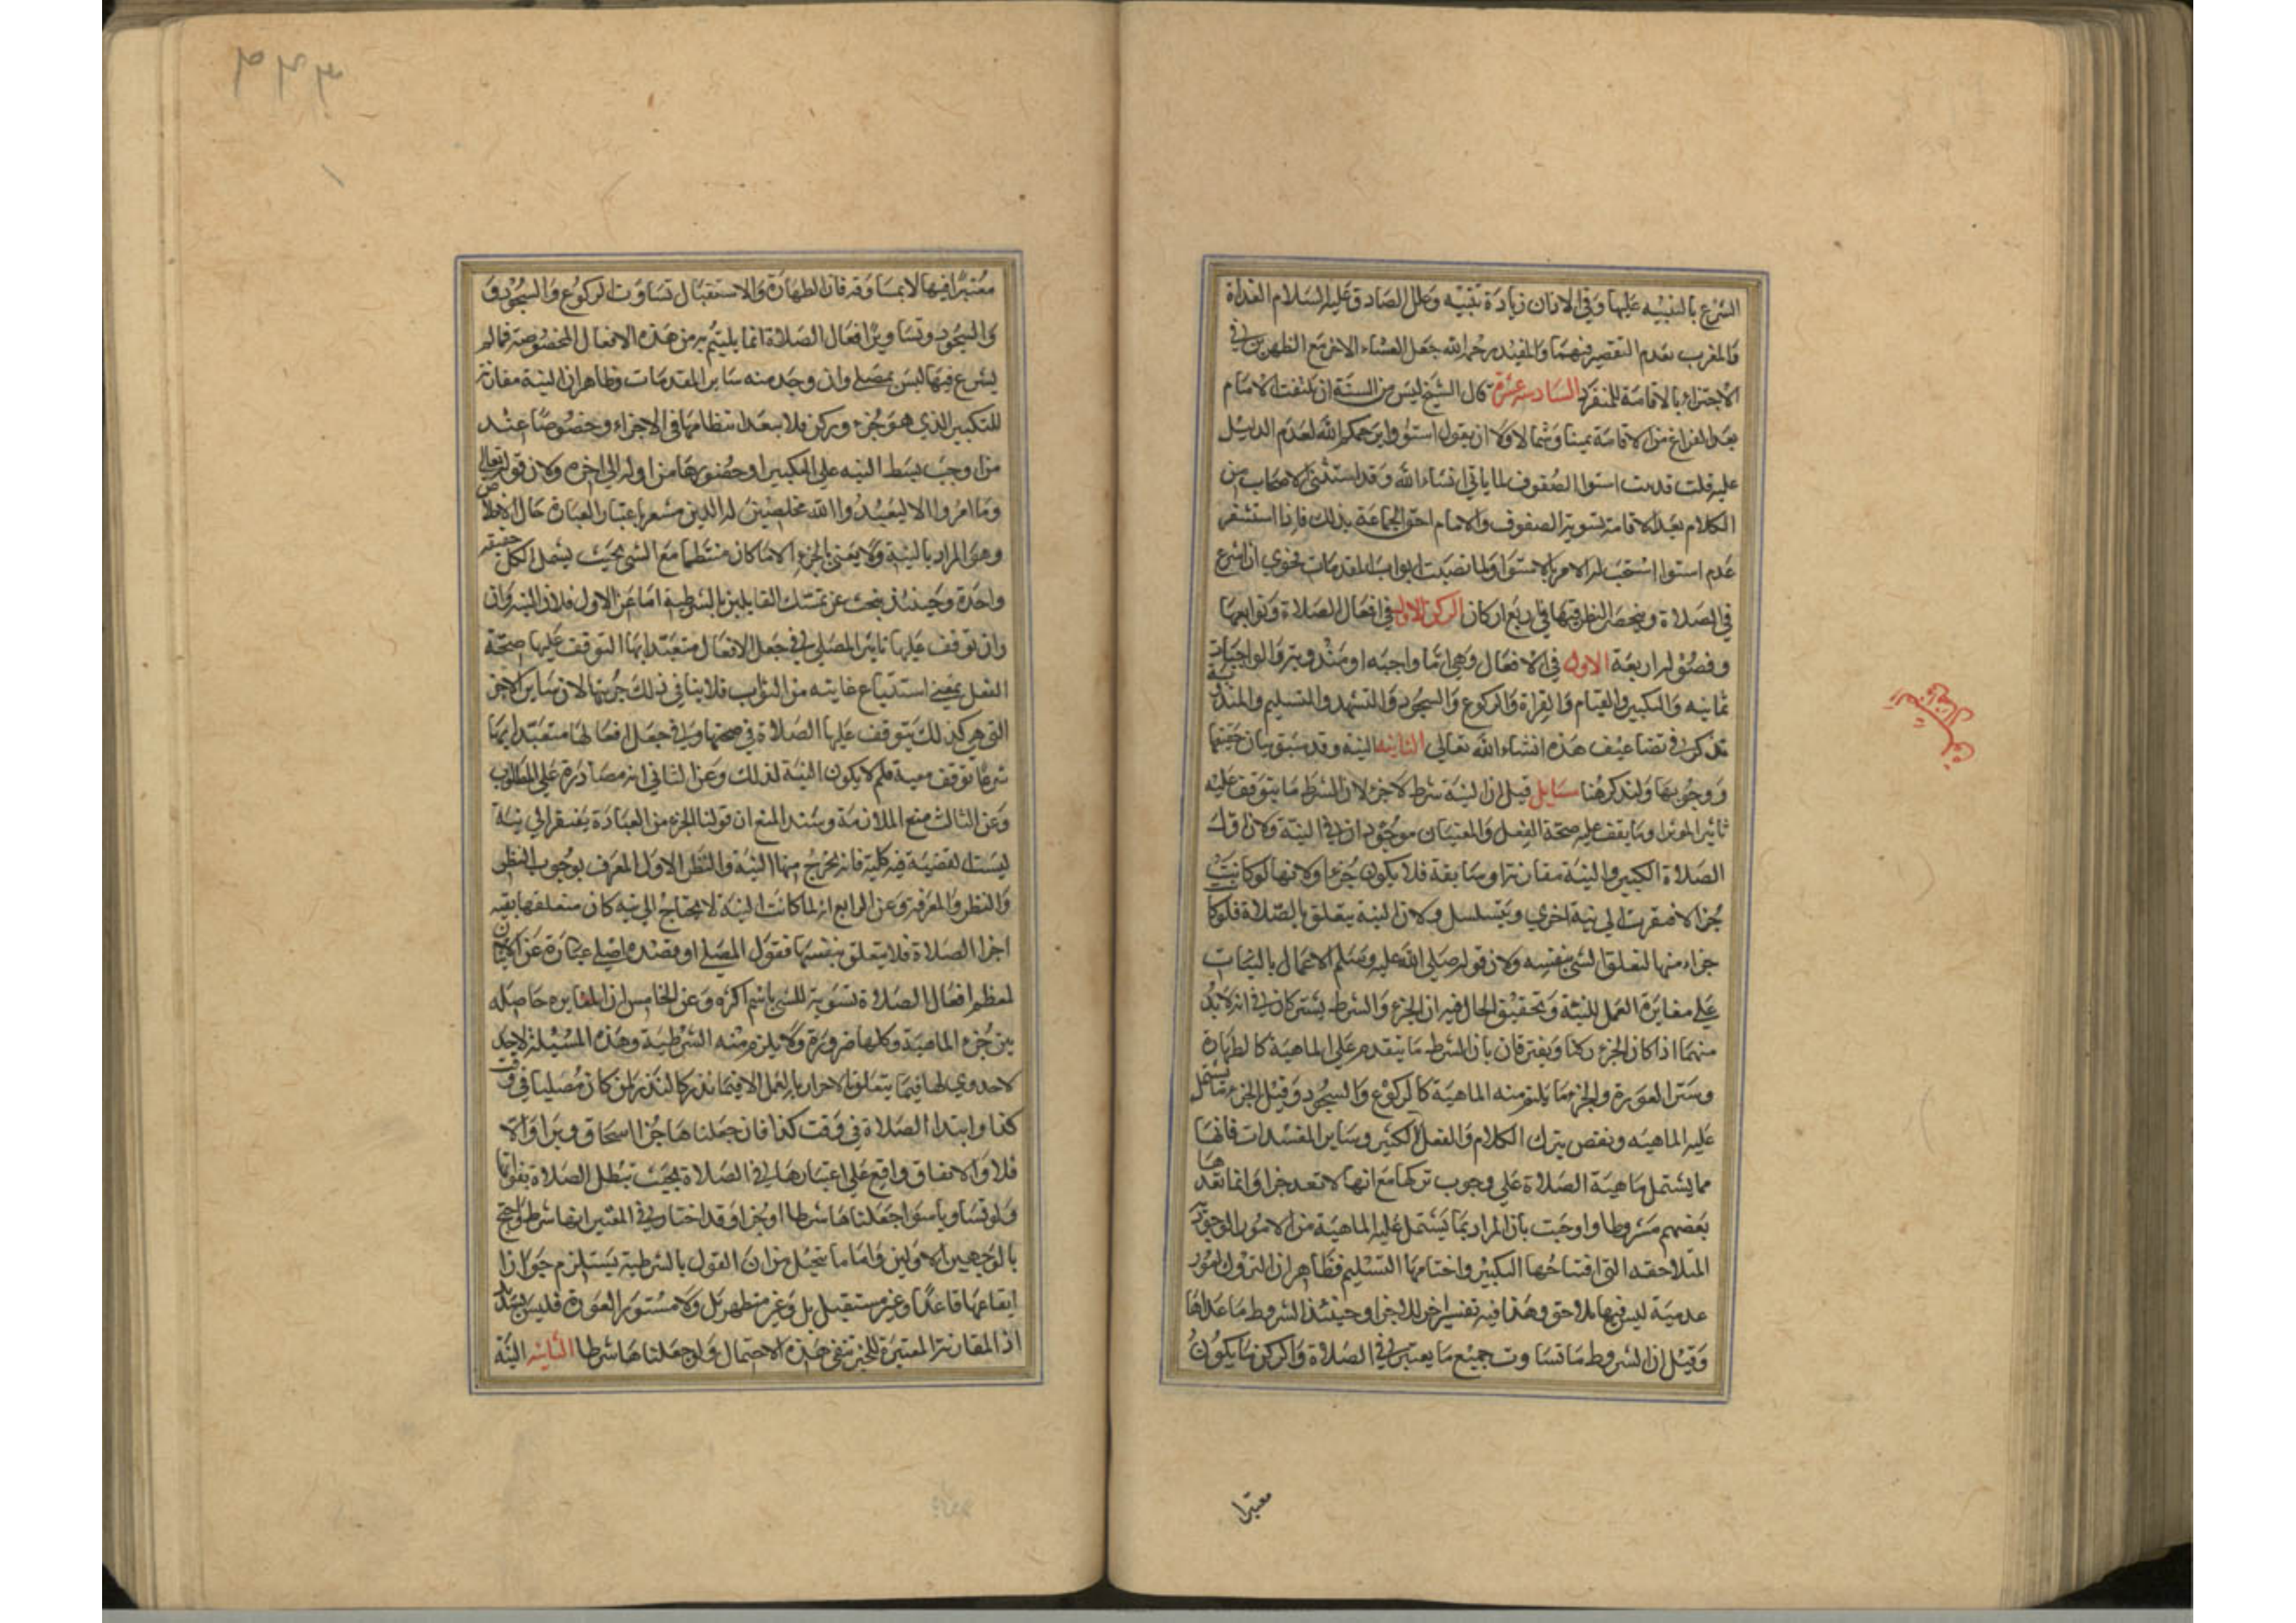 الشرع بالتنبيه عليها وفي الاذان زيادة تنبيه وعلل الصادق عليه السلام الغداة
والمغرب بعدم التقصير فيهما والمفيد رحمه الله جعل العشاء الاخر مع الظهرين في
الاجتزاء بالاقامة للمنفرد السادسة عشرة قال الشيخ ليس من السنة ان يلتفت الامام
بعد الفراغ من الاقامة يمينا وشمالا ولا ان يقول استووا يرحمكم الله لعدم الدليل
عليه قلت قد ثبت استوا الصفوف لما ياتي انشاء الله وقد استثنى الاصحاب من
الكلام بعد الاقامة تسوية الصفوف والامام احق الجماعة بذلك فاذا استشعر
عدم استوا استحب له الامر بالاستوا ولما نصبت ابواب المقدمات فحري ان اشرع
في الصلاة وينحصر النظر فيها في ربع اركان الركن الاول في افعال الصلاة وتوابعها
وفصوله اربعة الاول في الافعال وهي اما واجبه او مندوبة والواجبات
ثمانيه والتكبير والقيام والقراة والركوع والسجود والتشهد والتسليم والمندوبة
تذكر في تضاعيف هذه انشاء الله تعالى الثانيه النية وقد سبق بيان حقيقتها
ووجوبها ولنذكر هنا مسايل قيل ان النية شرط لا جزء لان الشرط ما يتوقف عليه
تاثير الموثر او ما يقف عليه صحة الفعل والمعنيان موجودان في النية ولان اول
الصلاة التكبير والنية مقارنة او سابقة فلا يكون جزءا ولانها لو كانت
جزا لافتقرت الى نية اخرى ويتسلسل ولان النية يتعلق بالصلاة فلو كا
جزاء منها لتعلق الشي بنفسه ولان قوله صلى الله عليه وسلم الاعمال بالنيات
على مغايرة العمل للنية وتحقيق الحال فيه ان الجزء والشرط يشتركان في انه لابد
منهما اذا كان الجزء ركنا ويفترقان بان الشرط ما يتقدم على الماهية كالطهارة
وستر العورة والجزء ما يلتئم منه الماهية كالركوع والسجود وقيل الجزء ما يشتمل
عليه الماهيه ونقض بترك الكلام والفعل الكثير وساير المفسدات فانها
مما يشتمل ماهية الصلاة على وجوب تركها مع انها لا تعد جزا وانما تعدها
بعضهم مشروطا واوجبت بان المراد بما يشتمل عليه الماهية من الامور الوجودية
المتلاحقه التي افتتاحها التكبير واختتامها التسليم فظاهر ان التروك امور
عدمية ليس فيها تلاحق وهذا فيه تفسير اخر للجزا وحينئذ الشروط ما عداها
وقيل ان الشروط ما تساوت جميع ما يعتبر في الصلاة والركن ما يكون
معتبرا
معتبرا فيها لا بمساوقه فان الطهارة والاستقبال تساوت الركوع والسجود و
والسجود وتساوير افعال الصلاة انما يلتئم من هذه الافعال المخصوصة فما لم
يشرع فيها ليس بمصل وان وجد منه ساير المقدمات وظاهر ان النية مقارنة
للتكبير الذي هو جزء وركن فلا بعد انتظامها في الاجزاء وخصوصا عند
من اوجب بسط النيه على التكبير او حضورها من اوله الى اخره ولان قوله تعالى
وما امروا الا ليعبدوا الله مخلصين له الدين مشعر باعتبار العبادة حال الاخلاص
وهو المراد بالنية ولا يعني بالجزء الا ما كان منتظما مع الشي بحيث يشمل الكل حقيقة
واحدة وحينئذ نجيب عن تمسك القائلين بالشرطية اما عن الاول فلان النية وان
وان توقف عليها تاثير المصلى في جعل الافعال متعبد ابها التوقف عليها صحة
الفعل بمعنى استتباع غايته من الثواب فلا ينافي ذلك جزئيتها لان ساير الاجزا
التي هي كذلك يتوقف عليها الصلاة في صحتها وفي جعل افعالها متعبدا بها
شرعا توقف معية فلم لا يكون النية لذلك وعن الثاني انه مصادرة على المطلوب
وعن الثالث منع الملازمة وسند المنع ان قولنا الجزء من العبادة يفتقر الى نية
ليست لقضية فيه كلية فانه يخرج منها النية والنظر الاول المعرف بوجوب النظر
والنظر والمعرفة وعن الرابع انه لما كانت النية لا يحتاج الى نيه كان متعلقها بقيه
اجزا الصلاة فلا يتعلق بنفسها فقول المصلي او قصده اصلي عبارة عن الاتيان
لمعظم افعال الصلاة تسوية للشي باسم اكثره وعن الخامس ان المغايرة حاصله
بين جزء الماهية وكلها ضرورة ولا يلزم منه الشرطية وهذه المسئلة لاجد
لا جدوى لها فيما يتعلق بالاحرار بالعمل الا فيما ندر كالنذر لمن كان مصليا في وقت
كذا وابتدا الصلاة في وقت كذا فان جعلناها جزا استحق وبرا والا
فلا والاتفاق واقع على اعتبارها في الصلاة بحيث تبطل الصلاة بفواتها
ولو نسا وناسوا جعلناها شرطا او جزا وقد اختار في المعتبر انها شرط واحتج
بالوجهين الاولين واما ما تخيل من ان القول بالشرطية يستلزم جواز
ايقاعها قاعدا وغير مستقبل بل وغير متطهر بل ولا مستور العورة فليس بسديد
اذ المقارنة المعتبرة للجزء تنفي هذه الاحتمال ولو جعلناها شرطا الثانيه النية